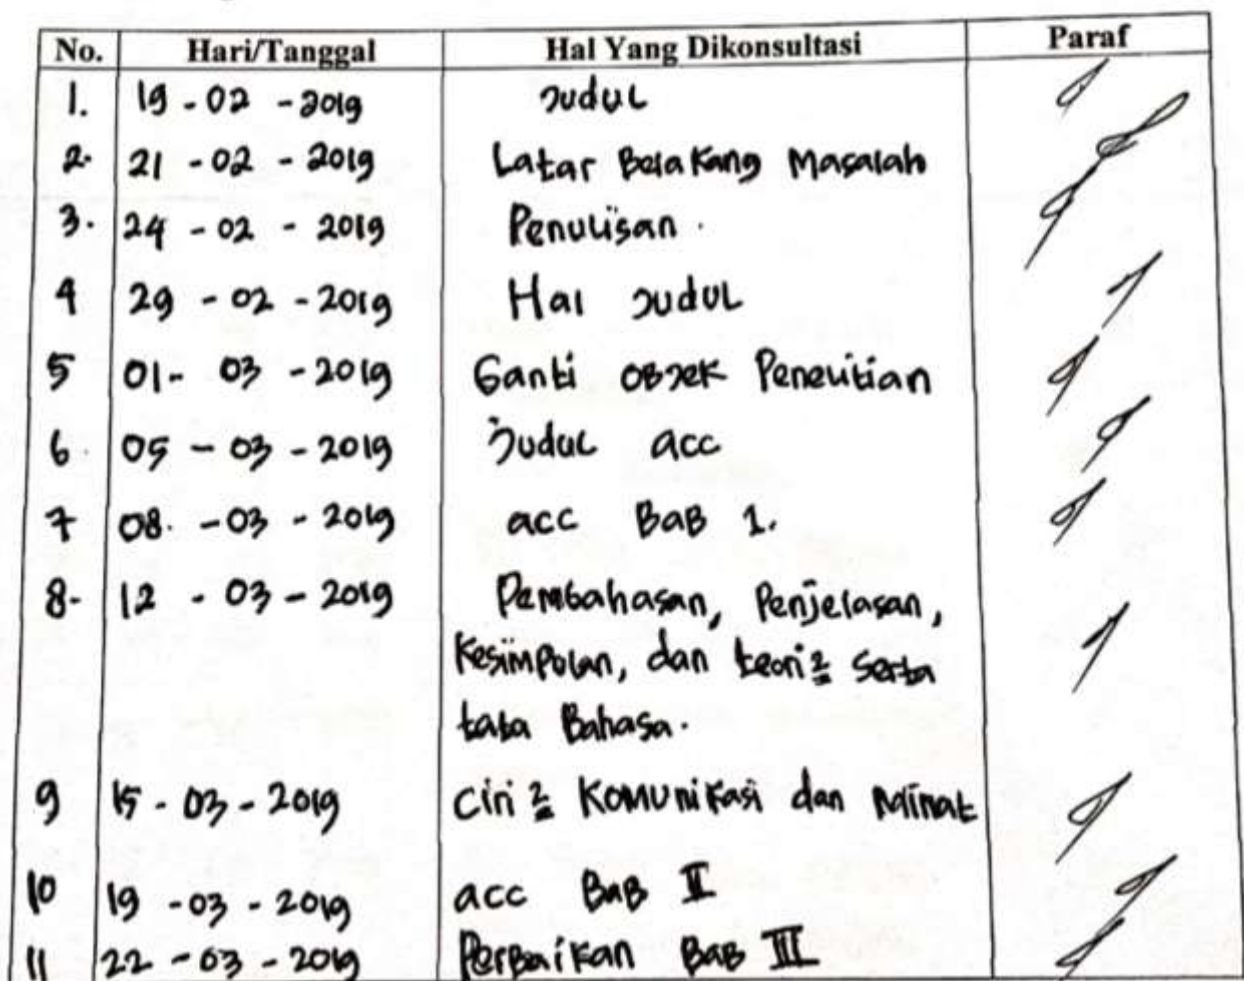 No. Hari/Tanggal Hal Yang Dikonsultasi Paraf
1. 19 - 02 - 2019 Judul
2. 21 - 02 - 2019 Latar Belakang Masalah
3. 24 - 02 - 2019 Penulisan.
4 29 - 02 - 2019 Hal Judul
5 01 - 03 - 2019 Ganti Objek Penelitian
6. 05 - 03 - 2019 Judul acc
7 08. - 03 - 2019 acc Bab 1.
8. 12 - 03 - 2019 Pembahasan, Penjelasan,
Kesimpulan, dan teori2 serta
tata Bahasa.
9 15 - 03 - 2019 Ciri2 Komunikasi dan Minat
10 19 - 03 - 2019 acc Bab II
11 22 - 03 - 2019 Perbaikan Bab III